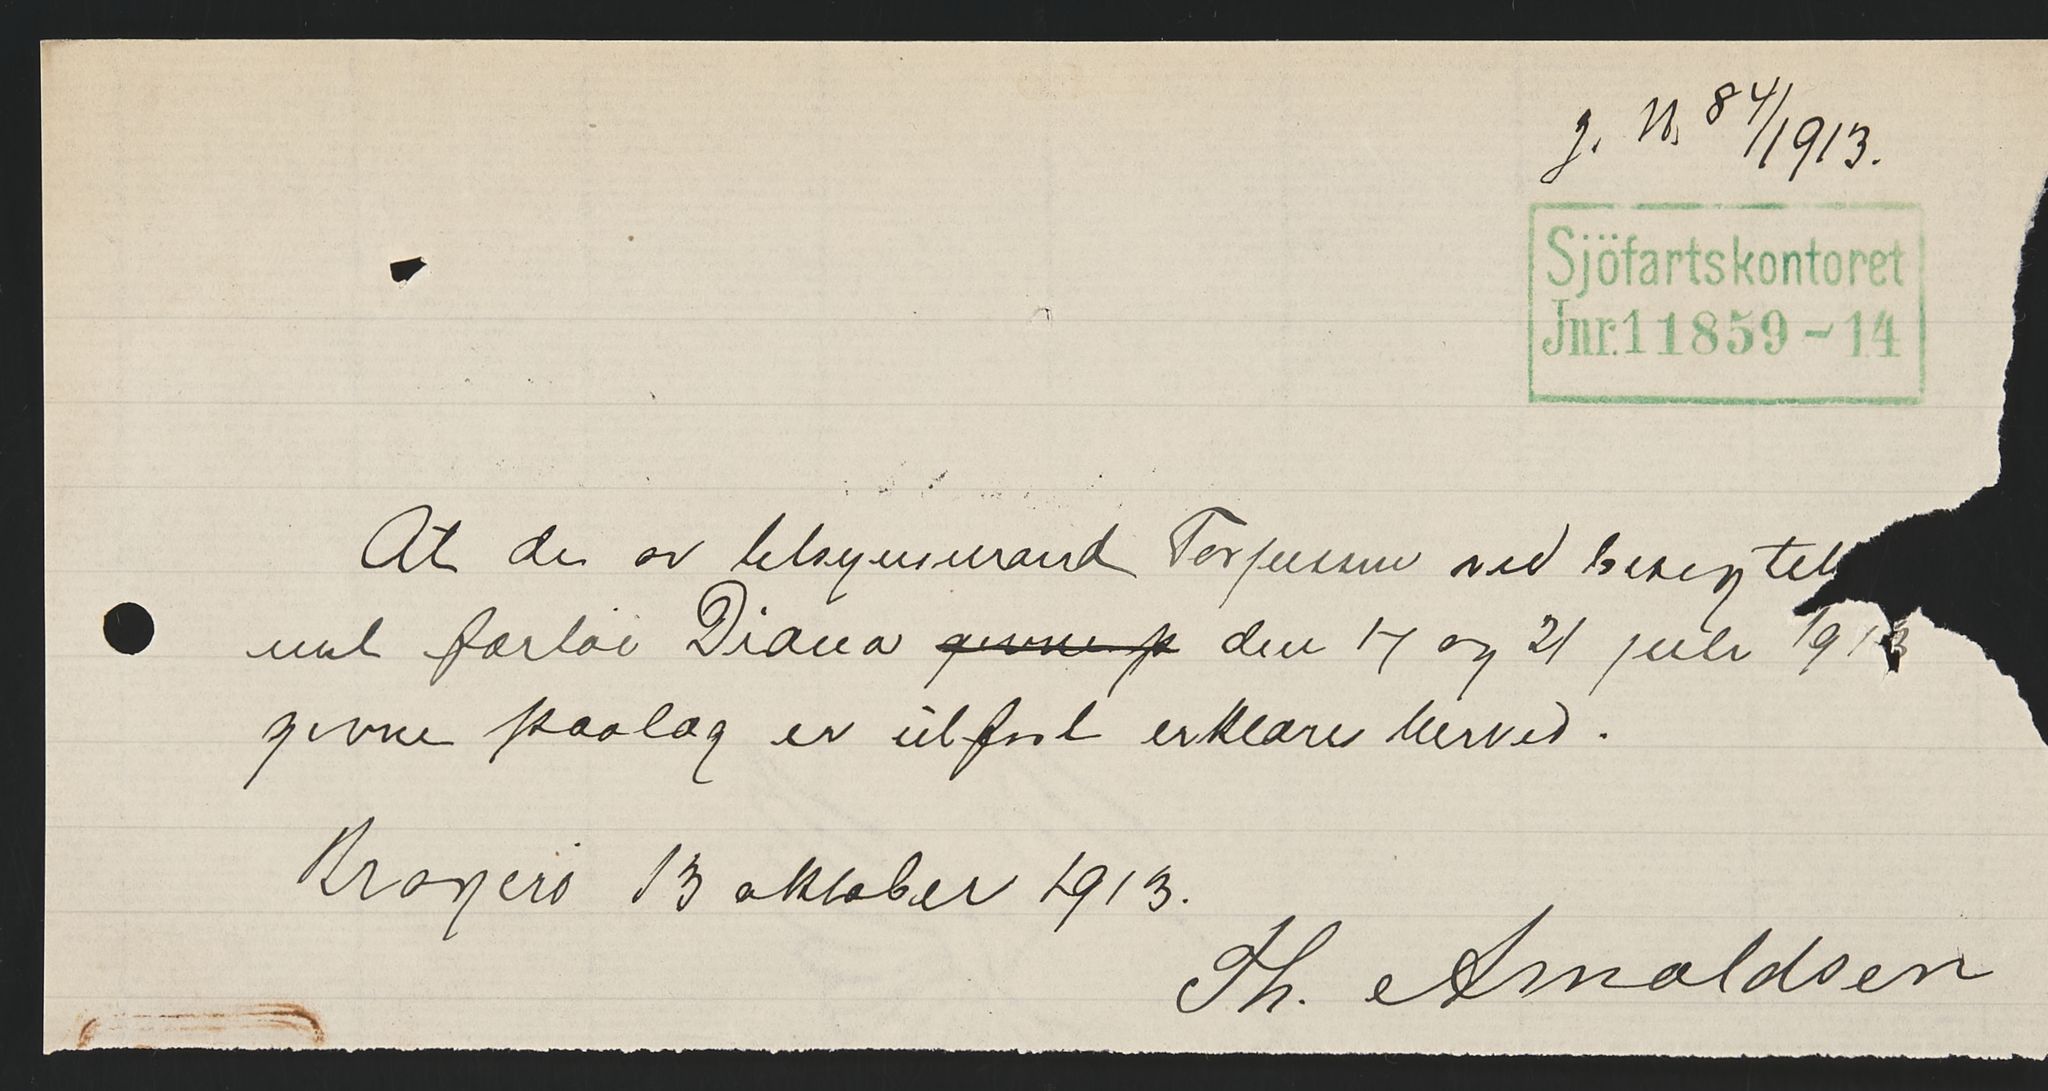 J. N. 84/1913.
Sjöfartskontoret
Jnr. 11859 - 14
At de av tilsynsmand Terjesen ved besigtel
mot fartøi Diana givne p den 17 og 21 juli 1913
givne paalæg er utført erklæres herved.
Kragerö 13 oktober 1913.
Th. Arnoldsen